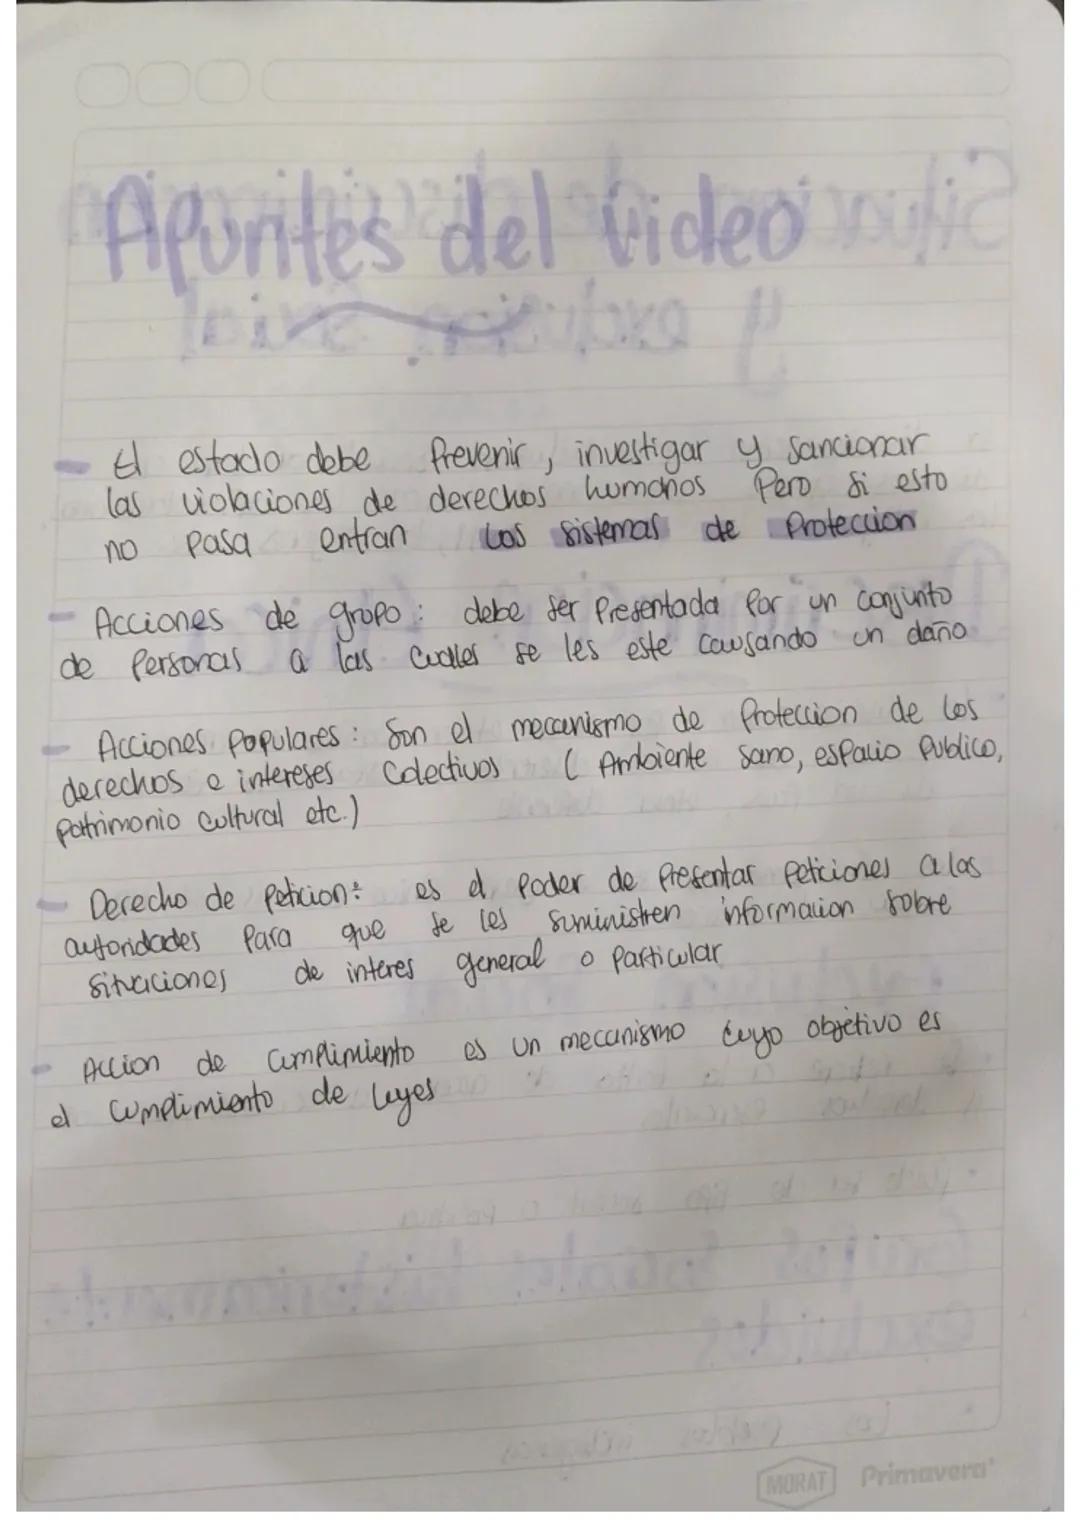 Apuntes del video
- El estado debe Prevenir, investigar y sancionar
las violaciones de derechos humanos Pero si esto
no pasa entran los sistemas de Proteccion
- Acciones de grupo: debe ser Presentada Por un conjunto
de Personas a las cuales se les este causando un daño
- Acciones Populares: Son el mecanismo de Proteccion de los
derechos e intereses Colectivos (Ambiente sano, espacio Publico,
patrimonio cultural etc.)
- Derecho de Peticion: es el Poder de Presentar Peticiones a las
autoridades Para que se les suministren informacion sobre
situaciones de interes general o Particular
- Accion de Cumplimiento es un mecanismo cuyo objetivo es
el Cumplimiento de Leyes
MORAT Primavera